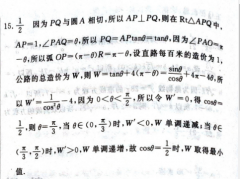 15. 1/2 因为 PQ 与圆 A 相切,所以 AP⊥PQ,则在 Rt△APQ 中,
AP=1,∠PAQ=θ,所以 PQ=APtanθ=tanθ,因为∠PAO=π
-θ,所以弧 OP=(π-θ)R=π-θ,设直路每百米的造价为 1,
公路的总造价为 W,则 W=tanθ+4(π-θ)=sinθ/cosθ+4π-4θ,所
以 W′=1/cos²θ-4,因为 0<θ<π/2,所以令 W′=0,得 cosθ=
1/2,则 θ=π/3,当 θ∈(0,π/3)时,W′<0,W 单调递减;当 θ∈
(π/3,π/2)时,W′>0,W 单调递增,故 cosθ=1/2时,W 取得最小
值.